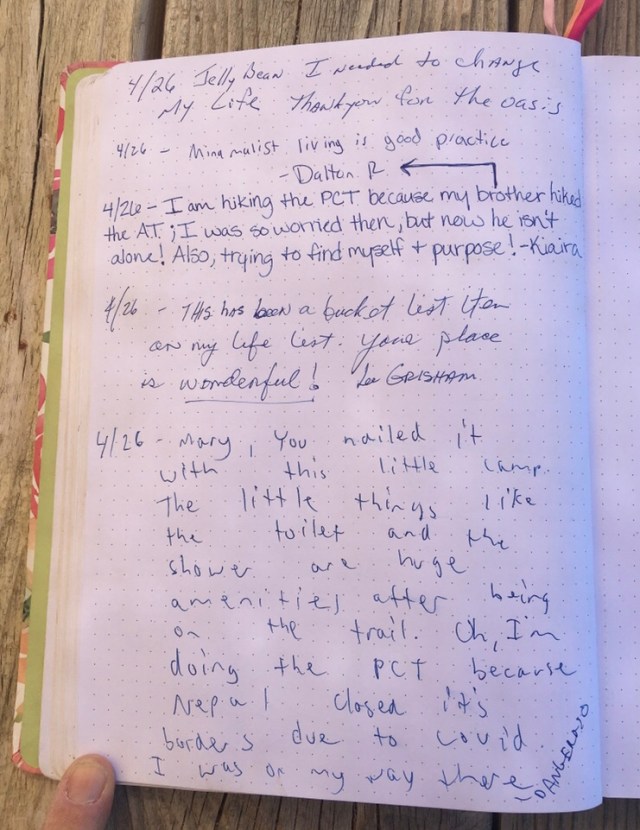 4/26 Jelly Bean I needed to change
My Life Thank you for the oasis
4/26 - Minamalist living is good practice
- Dalton R
4/26 - I am hiking the PCT because my brother hiked
the AT; I was so worried then, but now he isn't
alone! Also, trying to find myself + purpose! - Kiaira
4/26 - THIS has been a bucket list item
on my life list. Your place
is wonderful! Lee GRISHAM
4/26 - Mary, You nailed it
with this little camp.
The little things like
the toilet and the
shower are huge
amenities after being
on the trail. Oh, I'm
doing the PCT because
Nepal closed it's
borders due to covid.
I was on my way there
- DANGERNO